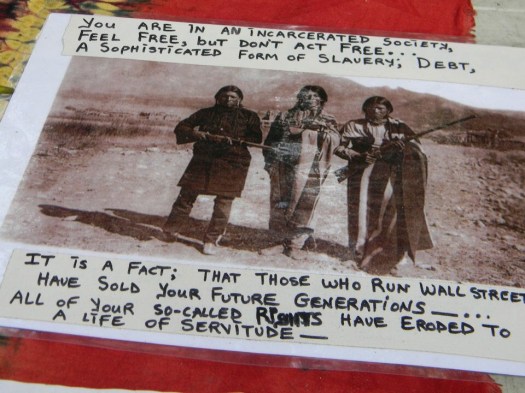 YOU ARE IN AN INCARCERATED SOCIETY,
FEEL FREE, but DON'T ACT FREE...
A SOPHISTICATED FORM OF SLAVERY; DEBT,
IT IS A FACT; THAT THOSE WHO RUN WALL STREET
HAVE SOLD YOUR FUTURE GENERATIONS — ...
ALL OF YOUR SO-CALLED RIGHTS HAVE ERODED TO
A LIFE OF SERVITUDE —